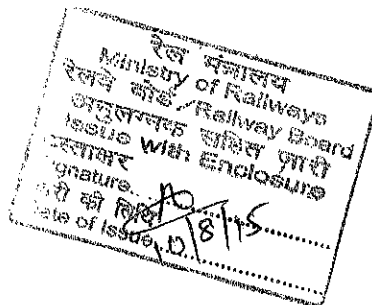 रेल मंत्रालय
Ministry of Railways
रेलवे बोर्ड / Railway Board
अनुलग्नक सहित जारी
Issue with Enclosure
हस्ताक्षर
Signature
जारी की तिथि
Date of Issue 10/8/15